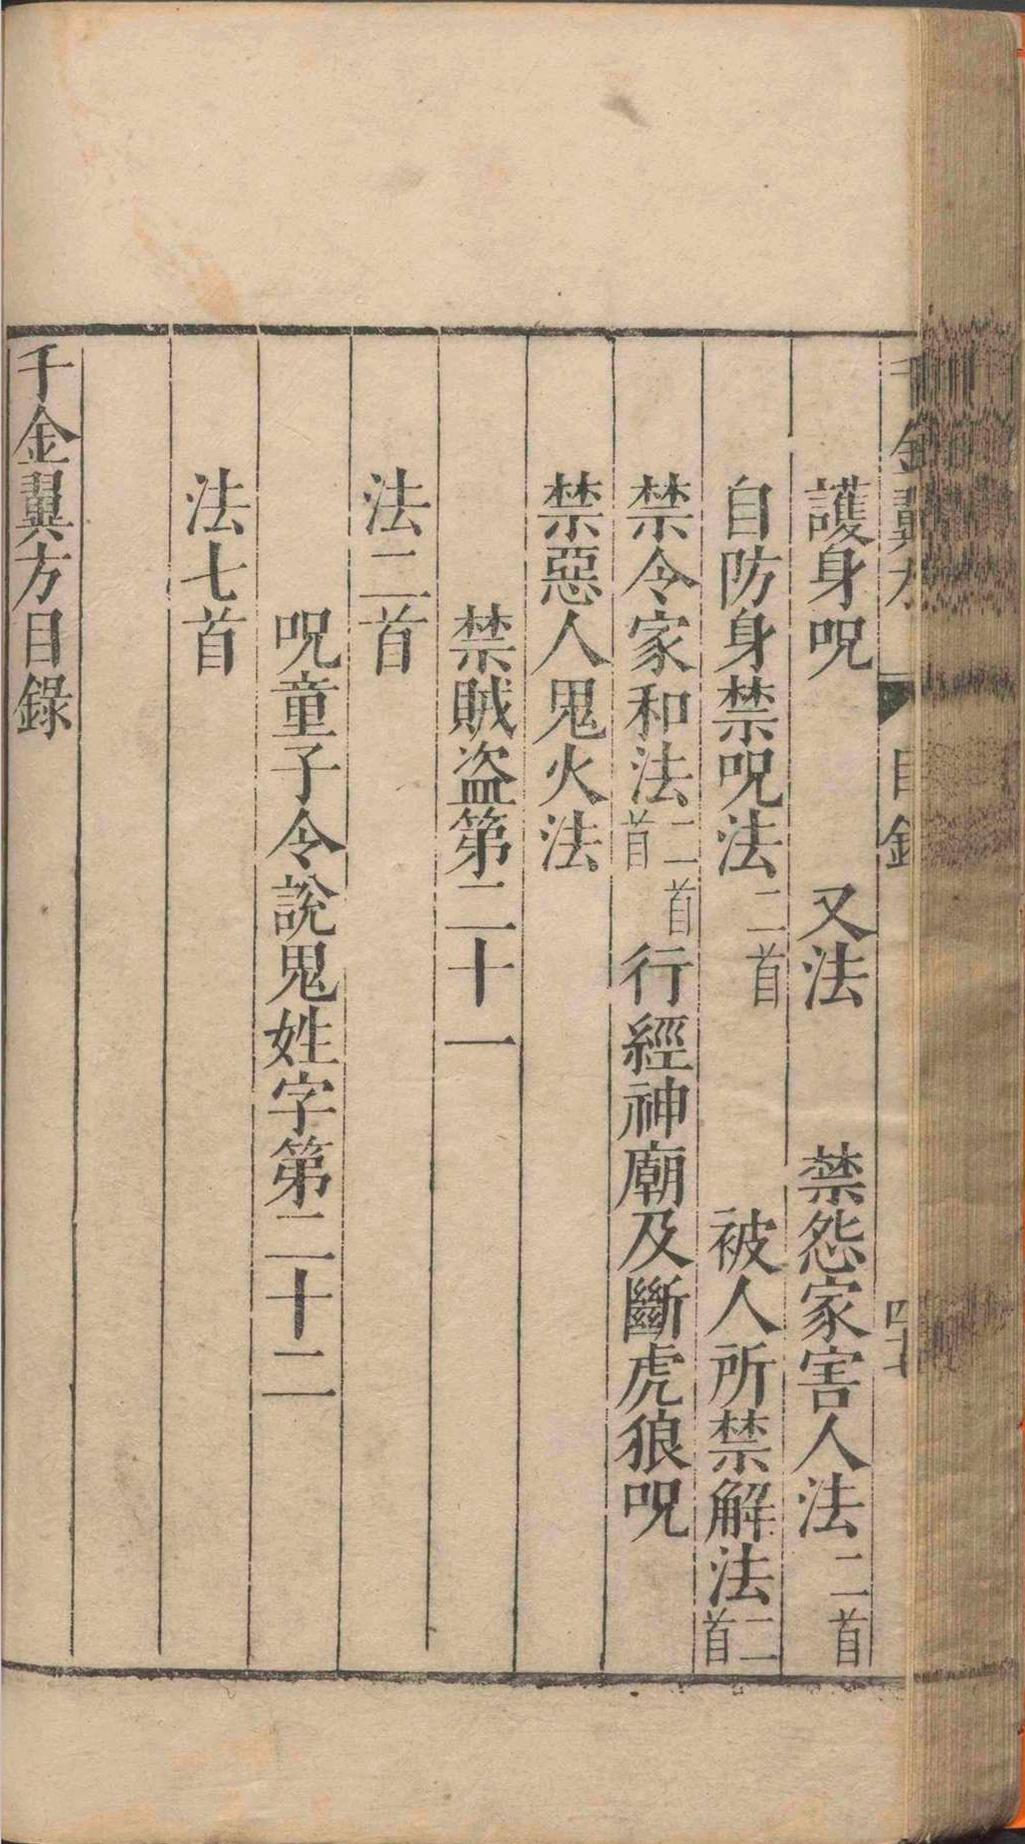 護身呪 又法 禁怨家害人法二首
自防身禁呪法二首 被人所禁解法二首
禁令家和法二首 行經神廟及斷虎狼呪
禁惡人鬼火法
禁賊盜第二十一
法二首
呪童子令說鬼姓字第二十二
法七首
千金翼方目錄